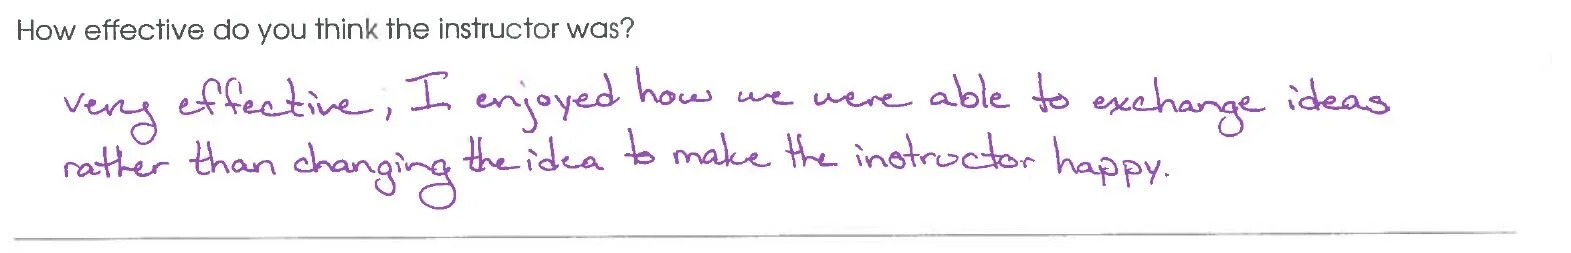 How effective do you think the instructor was?
very effective, I enjoyed how we were able to exchange ideas
rather than changing the idea to make the instructor happy.